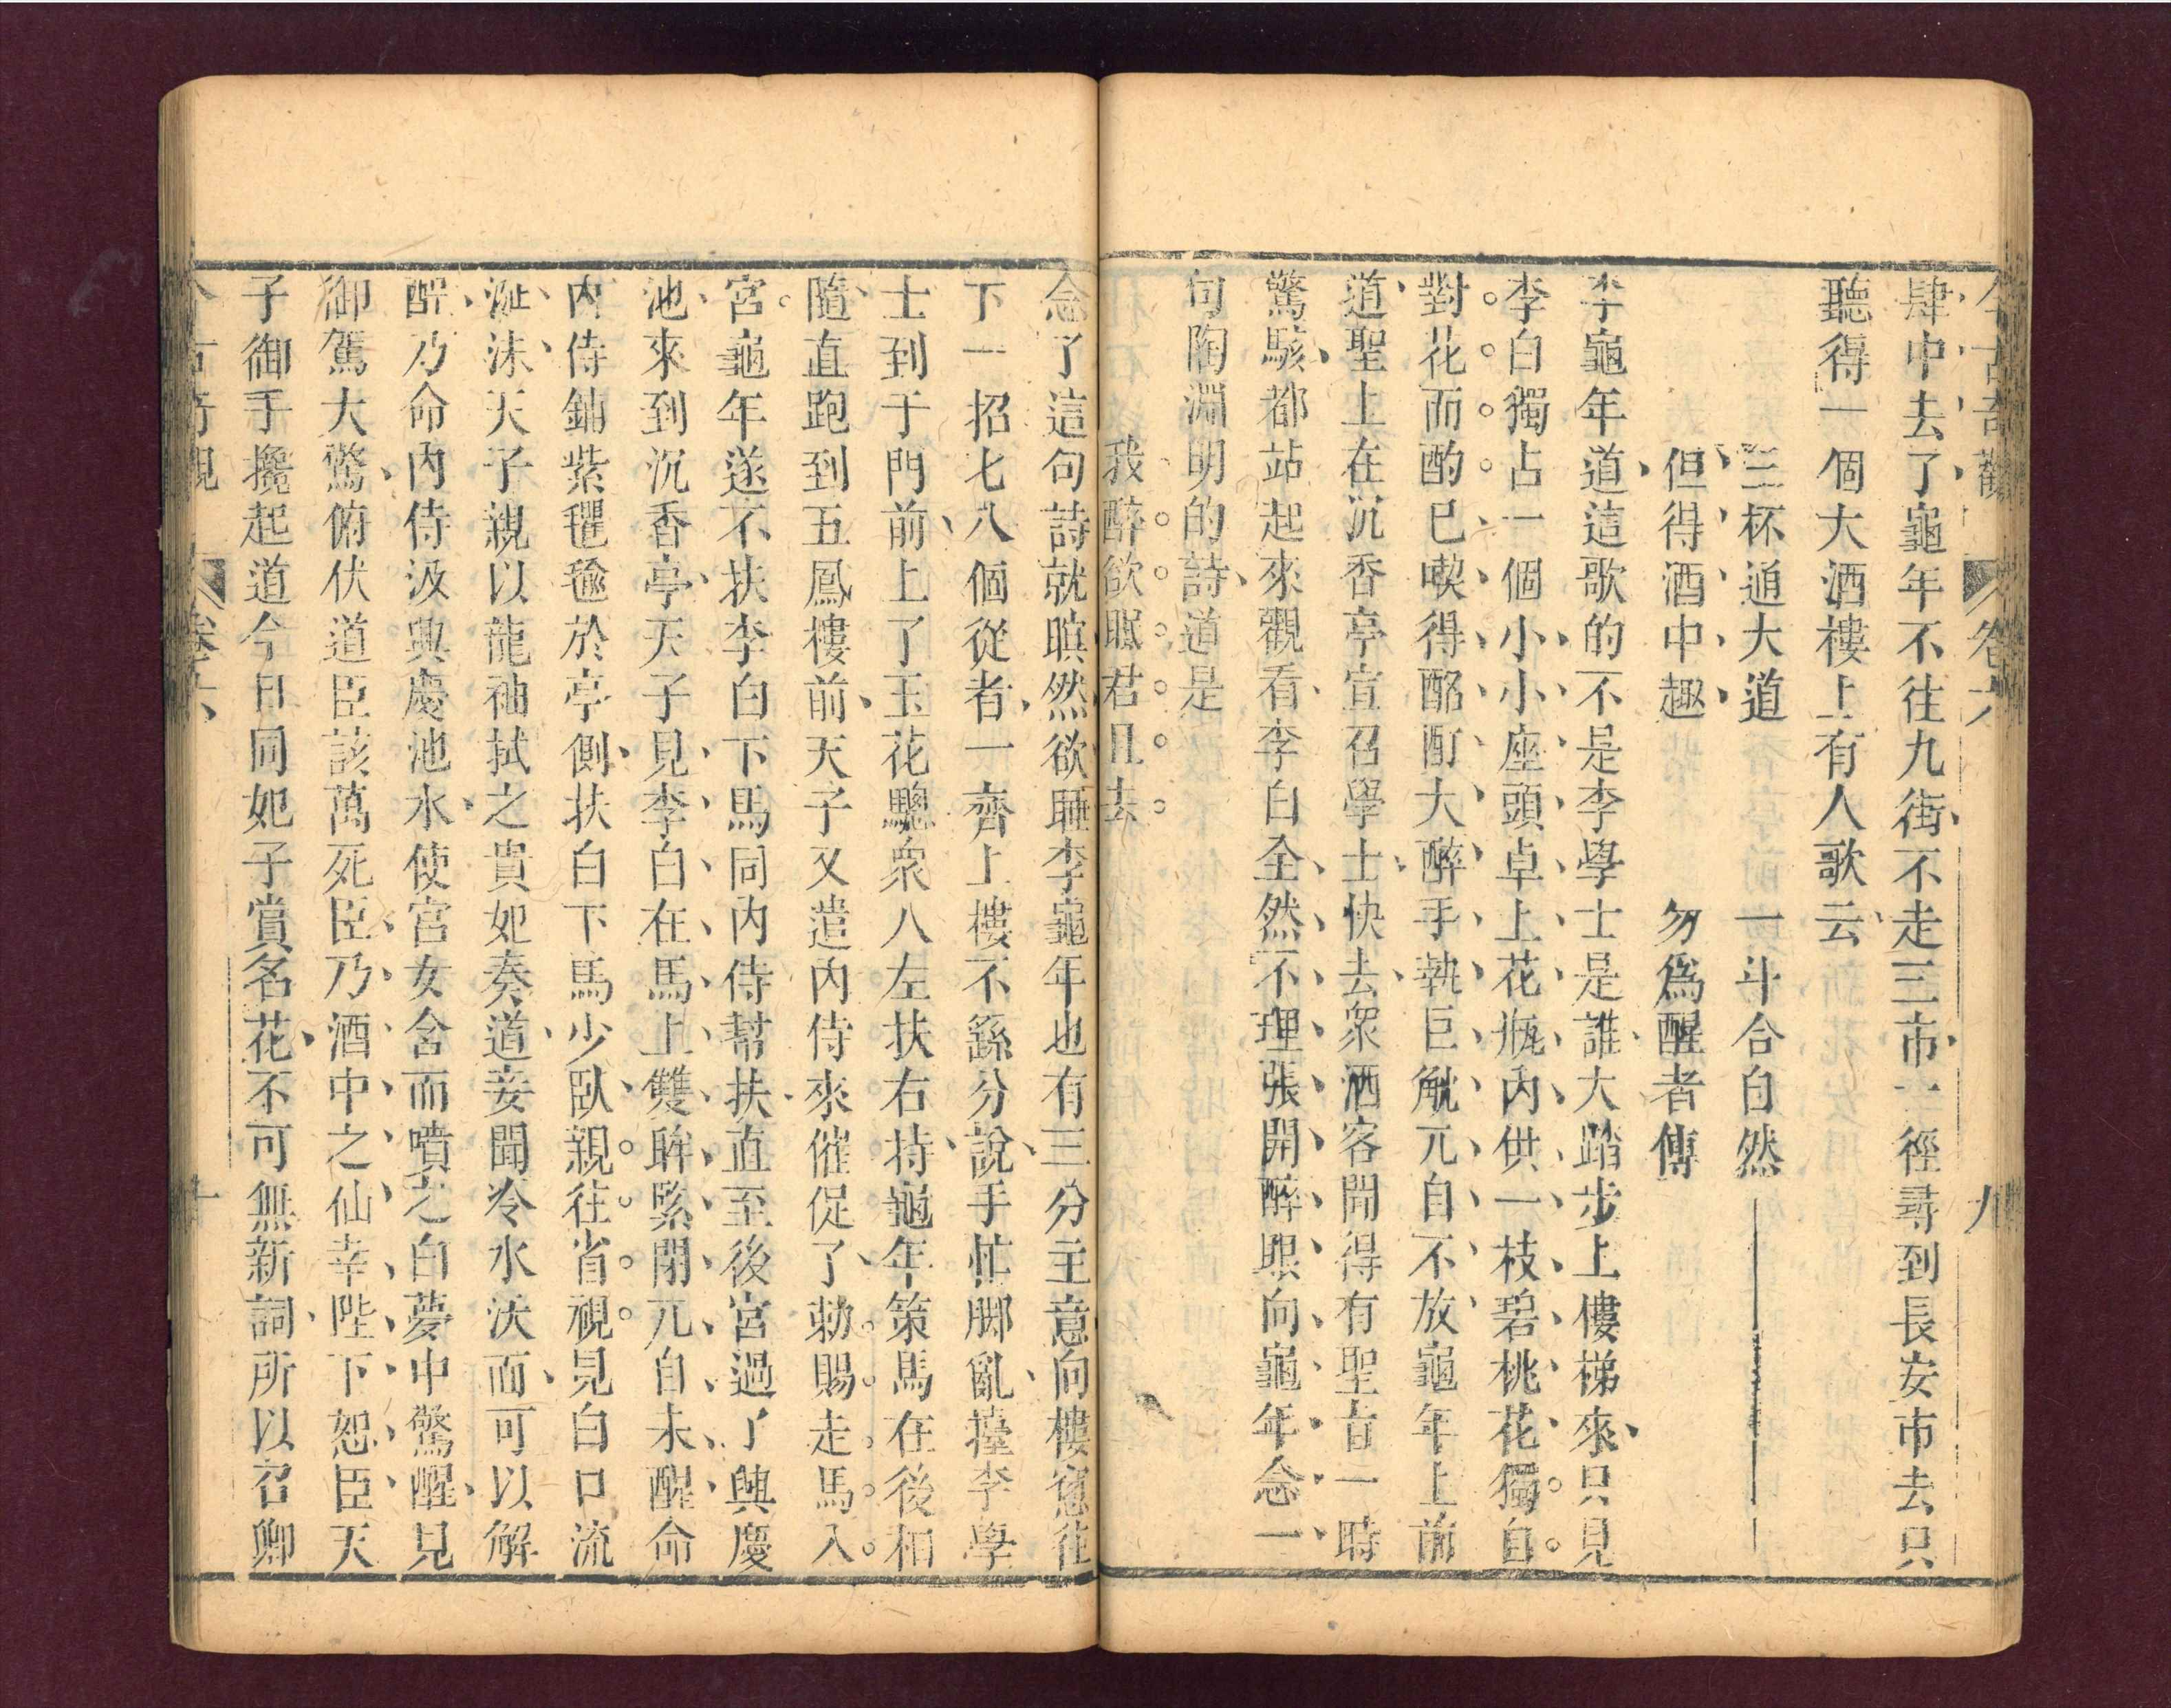 今古奇觀 卷六 九
肆中去了龜年不往九街不走三市一徑尋到長安市去只
聽得一個大酒樓上有人歌云
三杯通大道 一斗合自然
但得酒中趣 勿為醒者傳
李龜年道這歌的不是李學士是誰大踏步上僂梯來只見
李白獨占一個小小座頭卓上花瓶內供一枝碧桃花獨自
對花而酌已喫得酩酊大醉手執巨觥兀自不放龜年上前
道聖上在沉香亭宣召學士快去衆酒客聞得有聖旨一時
驚駭都站起來觀看李白全然不理張開醉眼向龜年念一
句陶淵明的詩道是
我醉欲眠君且去
念了這句詩就瞑然欲睡李龜年也有三分主意向樓窻往
下一招七八個從者一齊上樓不繇分說手忙脚亂擡李學
士到于門前上了玉花驄衆人左扶右持龜年策馬在後相
隨直跑到五鳳樓前天子又遣內侍來催促了勅賜走馬入
宮龜年遂不扶李白下馬同內侍幫扶直至後宮過了興慶
池來到沉香亭天子見李白在馬上雙眸緊閉兀自未醒命
內侍鋪紫氍毹於亭側扶白下馬少臥親往省視見白口流
涎沫天子親以龍袖拭之貴妃奏道妾聞冷水沃面可以解
酲乃命內侍汲興慶池水使宮女含而噴之白夢中驚醒見
御駕大驚俯伏道臣該萬死臣乃酒中之仙幸陛下恕臣天
子御手攙起道今日同妃子賞名花不可無新詞所以召卿
今古奇觀 卷六 十